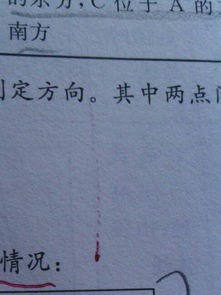 的东方，C 位于 A 的
南方
定方向。其中两点
情况：